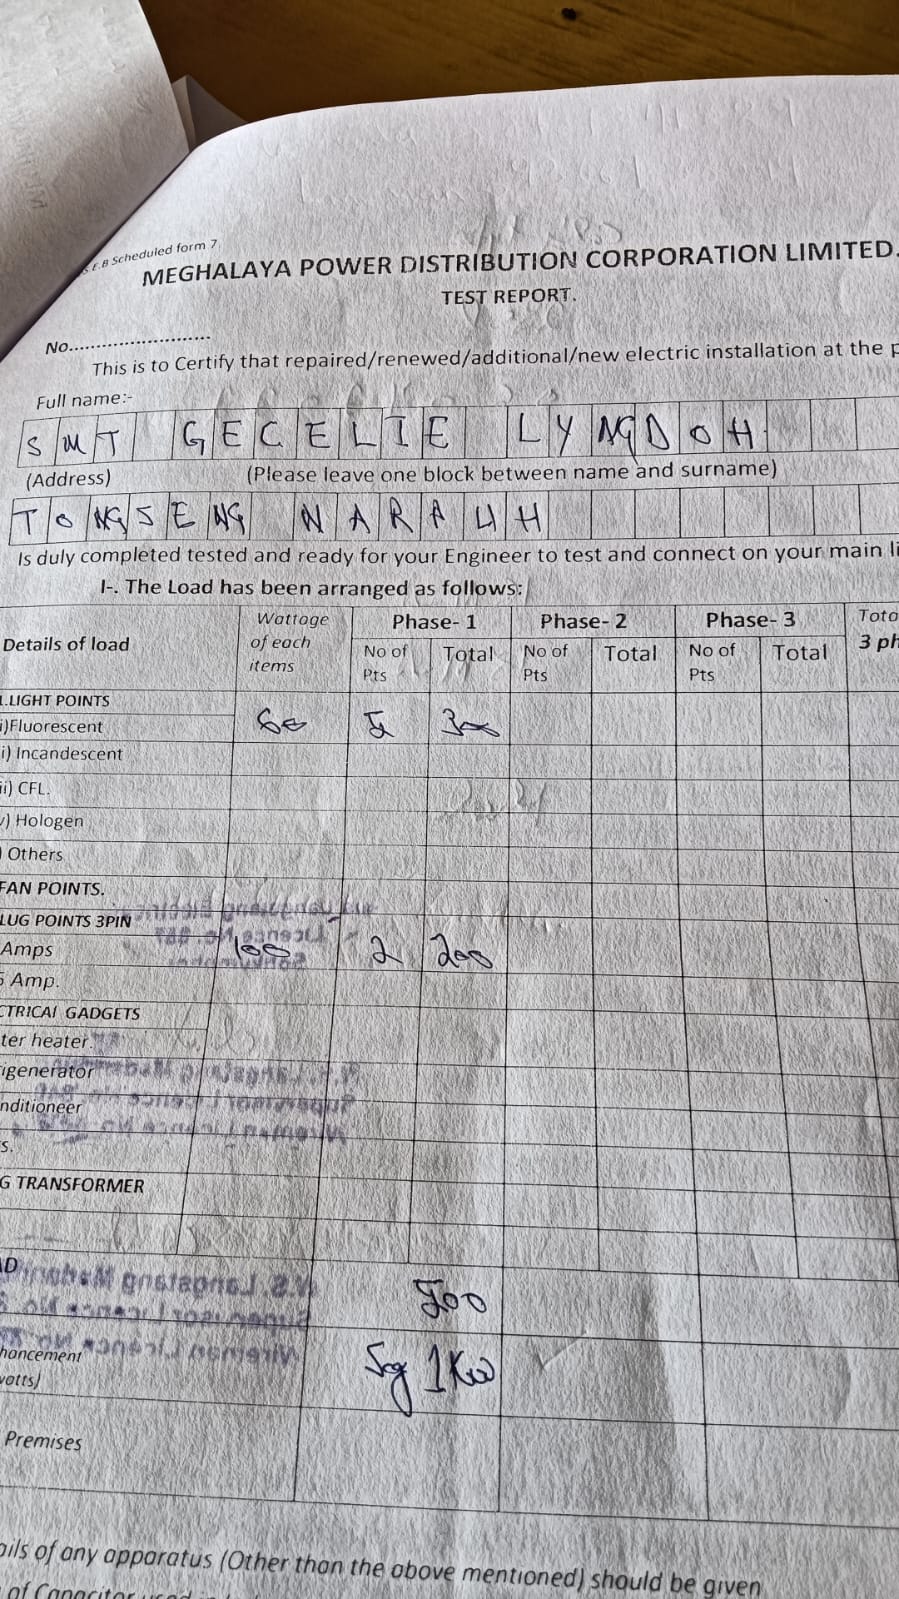 S.E.B Scheduled form 7
MEGHALAYA POWER DISTRIBUTION CORPORATION LIMITED.
TEST REPORT.
No.........................
This is to Certify that repaired/renewed/additional/new electric installation at the p
Full name:-
SMT GECELIE LYNGDOH
(Address) (Please leave one block between name and surname)
TONGSENG NARPUH
Is duly completed tested and ready for your Engineer to test and connect on your main li
I-. The Load has been arranged as follows:
Details of load Wattage of each items Phase- 1 Phase- 2 Phase- 3 Tota
No of Pts Total No of Pts Total No of Pts Total 3 ph
.LIGHT POINTS
i)Fluorescent 60 5 300
i) Incandescent
ii) CFL.
v) Hologen
) Others
FAN POINTS.
LUG POINTS 3PIN
Amps 100 2 200
5 Amp.
CTRICAl GADGETS
ter heater.
igenerator
nditioneer
s.
G TRANSFORMER
AD 500
hancement
watts) Say 1Kw
Premises
ails of any apparatus (Other than the above mentioned) should be given
of Capacitor used